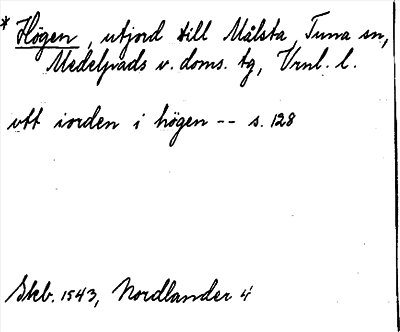 * Högen, utjord till Målsta, Tuna sn,
Medelpads v. doms. tg, Vrnl. l.
vtt iorden i högen -- s. 128
Skb. 1543, Nordlander 4